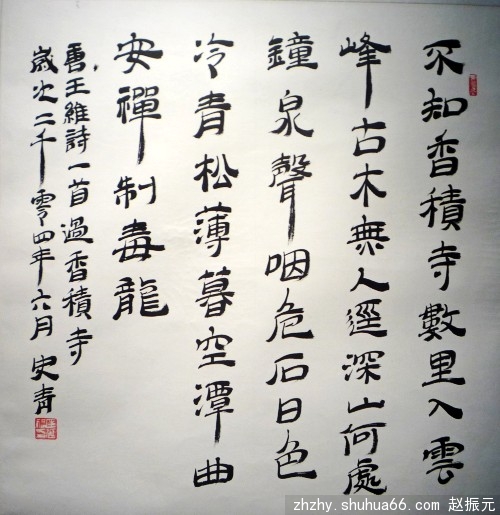 不知香積寺數里入雲
峰古木無人逕深山何處
鐘泉聲咽危石日色
冷青松薄暮空潭曲
安禪制毒龍
唐王維詩一首過香積寺
歲次二千零四年六月史青
zhzhy.shuhua66.com 赵振元